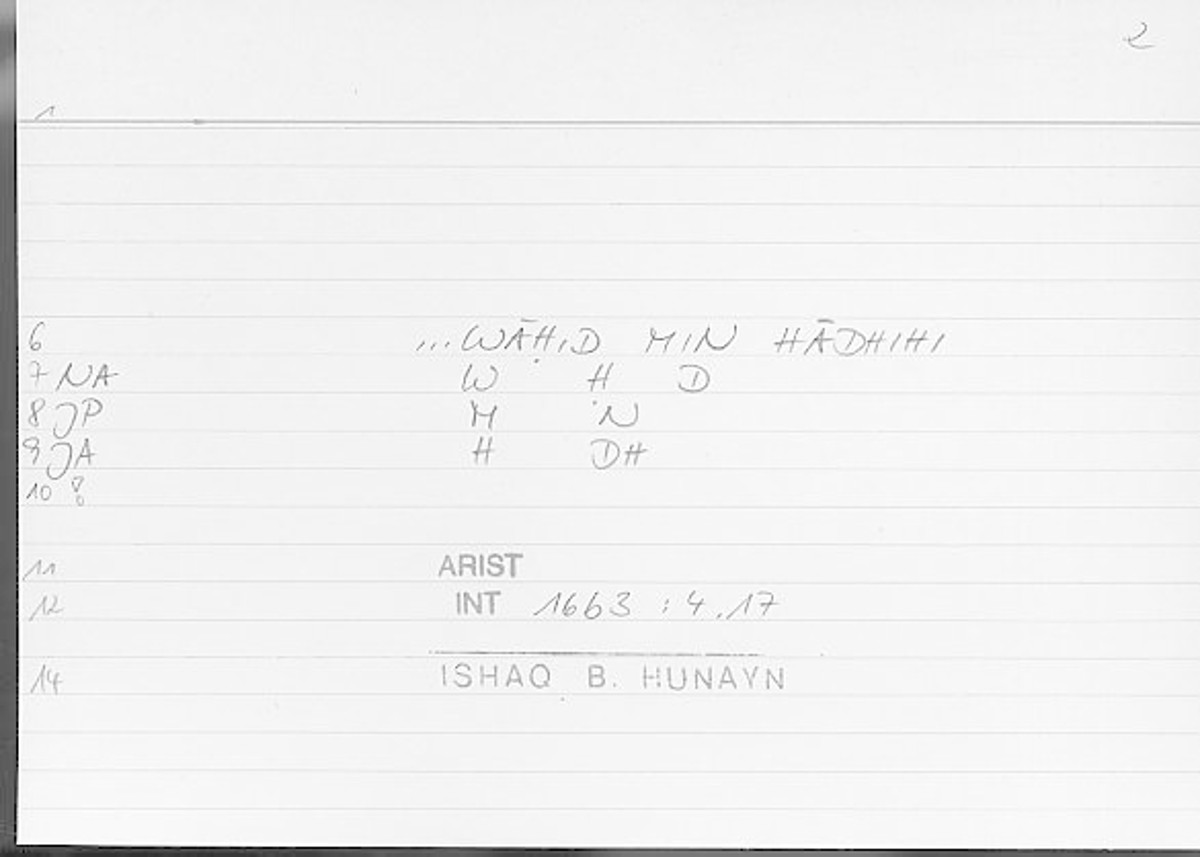 2
1
6 ...WĀḤID MIN HĀDHIHI
7 NA W Ḥ D
8 JP M N
9 JA H DH
10 8
11 ARIST
12 INT 1663 : 4.17
14 ISHAQ B. HUNAYN